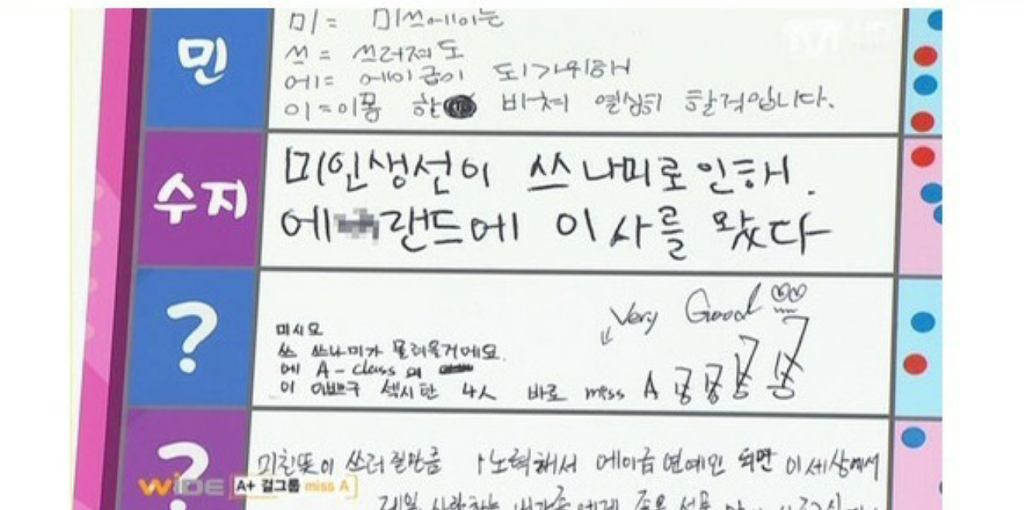 민
미 = 미쓰에이는
쓰 = 쓰러져도
에 = 에이급이 되기위해
이 = 이몸 한 바쳐 열심히 할것입니다.
수지
미인생선이 쓰나미로인해.
에 랜드에 이사를 왔다
?
Very Good
미 시요
쓰 쓰나미가 몰려올거에요.
에 A-class의
이 이쁘구 섹시한 4人 바로 miss A
?
미친듯이 쓰러질만큼 노력해서 에이급연예인 되면 이세상에서
제일 사랑하는
WIDE A+ 걸그룹 miss A